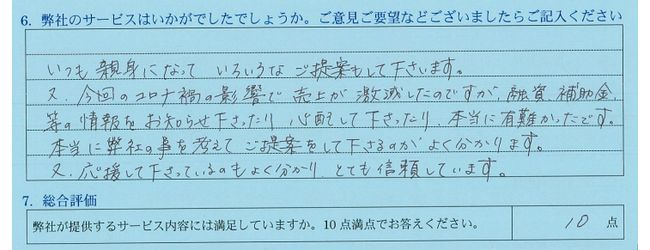 6. 弊社のサービスはいかがでしたでしょうか。ご意見ご要望などございましたらご記入ください
いつも親身になって いろいろな ご提案もして下さいます。
又、今回のコロナ禍の影響で 売上が 激減したのですが、融資、補助金、
等の情報を お知らせ下さったり 心配して下さったり、本当に有難かったです。
本当に弊社の事を考えて ご提案をして下さるのが よく分かります。
又、応援して下さっているのもよく分かり、とても信頼しています。
7. 総合評価
弊社が提供するサービス内容には満足していますか。10点満点でお答えください。 10 点